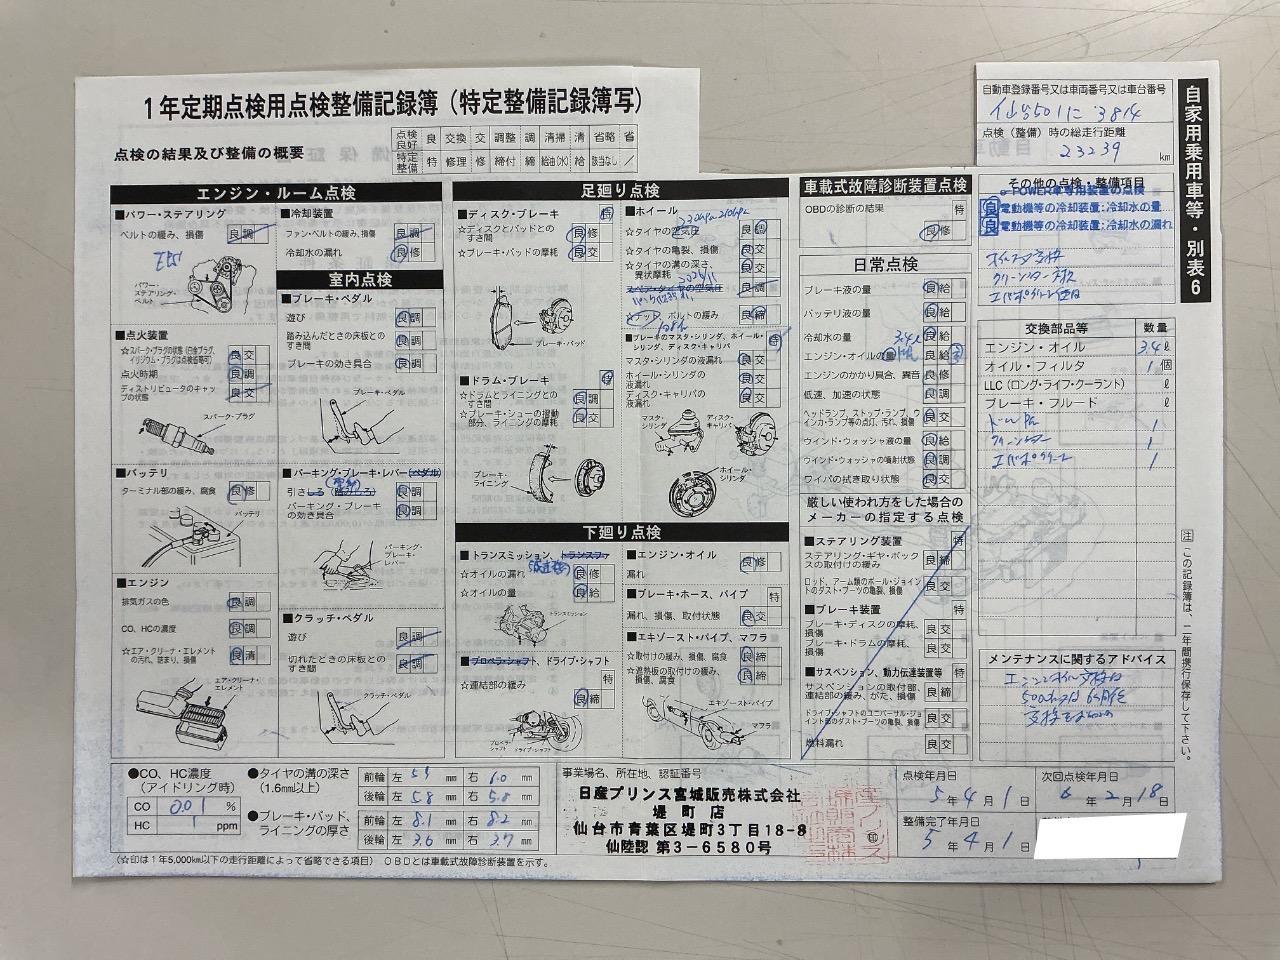 1年定期点検用点検整備記録簿（特定整備記録簿写）
点検の結果及び整備の概要
点検良好 良 交換 交 調整 調 清掃 清 省略 省
特定整備 特 修理 修 締付 締 給油(水) 給 該当なし ／
自動車登録番号又は車両番号又は車台番号
仙台501に 3814
点検（整備）時の総走行距離
23239 km
自家用乗用車等・別表6
エンジン・ルーム点検
■パワー・ステアリング
ベルトの緩み、損傷 良 調
パワー・ステアリング・ベルト
■点火装置
☆スパーク・プラグの状態（白金プラグ、イリジウム・プラグは点検省略可） 良 交
点火時期 良 調
ディストリビュータのキャップの状態 良 交
スパーク・プラグ
■バッテリ
ターミナル部の緩み、腐食 良 修
バッテリ
■エンジン
排気ガスの色 良 調
CO、HCの濃度 良 調
☆エア・クリーナ・エレメントの汚れ、詰まり、損傷 良 清
エア・クリーナ・エレメント
■冷却装置
ファン・ベルトの緩み、損傷 良 調
冷却水の漏れ 良 修
室内点検
■ブレーキ・ペダル
遊び 良 調
踏み込んだときの床板とのすき間 良 調
ブレーキの効き具合 良 調
ブレーキ・ペダル
■パーキング・ブレーキ・レバー（ペダル）
引きしろ（踏みしろ） 良 調
パーキング・ブレーキの効き具合 良 調
パーキング・ブレーキ・レバー
■クラッチ・ペダル
遊び 良 調
切れたときの床板とのすき間 良 調
クラッチ・ペダル
足廻り点検
■ディスク・ブレーキ 特
☆ディスクとパッドとのすき間 良 修
☆ブレーキ・パッドの摩耗 良 交
ブレーキ・パッド
■ドラム・ブレーキ 特
☆ドラムとライニングとのすき間 良 調
☆ブレーキ・シューの摺動部分、ライニングの摩耗 良 交
ブレーキ・ライニング
■ホイール
☆タイヤの空気圧 良 調
☆タイヤの亀裂、損傷 良 交
☆タイヤの溝の深さ、異状摩耗 良 交
スペア・タイヤの空気圧 良 調
☆ナット、ボルトの緩み 良 締
■ブレーキのマスタ・シリンダ、ホイール・シリンダ、ディスク・キャリパ 特
マスタ・シリンダの液漏れ 良 交
ホイール・シリンダの液漏れ 良 交
ディスク・キャリパの液漏れ 良 交
マスタ・シリンダ ディスク・キャリパ
ホイール・シリンダ
下廻り点検
■トランスミッション、トランスファ
☆オイルの漏れ 良 修
☆オイルの量 良 給
トランスミッション
■プロペラ・シャフト、ドライブ・シャフト
☆連結部の緩み 良 締
プロペラ・シャフト ドライブ・シャフト
■エンジン・オイル
漏れ 良 修
■ブレーキ・ホース、パイプ 特
漏れ、損傷、取付状態 良 交
■エキゾースト・パイプ、マフラ
☆取付けの緩み、損傷、腐食 良 締
☆遮熱板の取付けの緩み、損傷、腐食 良 締
エキゾースト・パイプ
マフラ
車載式故障診断装置点検
OBDの診断の結果 特 良 修
日常点検
ブレーキ液の量 良 給
バッテリ液の量 良 給
冷却水の量 良 給
3.4ℓ
エンジン・オイルの量 良 給
エンジンのかかり具合、異音 良 修
低速、加速の状態 良 調
ヘッドランプ、ストップ・ランプ、ウインカ・ランプ等の点灯、汚れ、損傷 良 交
ウインド・ウォッシャ液の量 良 給
ウインド・ウォッシャの噴射状態 良 調
ワイパの拭き取り状態 良 交
厳しい使われ方をした場合のメーカーの指定する点検
■ステアリング装置 特
ステアリング・ギヤ・ボックスの取付けの緩み 良 締
ロッド、アーム類のボール・ジョイントのダスト・ブーツの亀裂、損傷 良 交
■ブレーキ装置 特
ブレーキ・ディスクの摩耗、損傷 良 交
ブレーキ・ドラムの摩耗、損傷 良 交
■サスペンション、動力伝達装置等 特
サスペンションの取付部、連結部の緩み、がた、損傷 良 締
ドライブ・シャフトのユニバーサル・ジョイント部のダスト・ブーツの亀裂、損傷 良 交
燃料漏れ 良 交
その他の点検・整備項目
e-POWER車専用装置の点検
良 電動機等の冷却装置：冷却水の量
良 電動機等の冷却装置：冷却水の漏れ
交換部品等 数量
エンジン・オイル 3.4 ℓ
オイル・フィルタ 1 個
LLC（ロング・ライフ・クーラント） ℓ
ブレーキ・フルード ℓ
ドレンPK 1
クリーンフィルター 1
エバポクリーン 1
メンテナンスに関するアドバイス
エンジンオイル交換は
5000km又は6ヶ月毎
注 この記録簿は、二年間携行保存して下さい。
●CO、HC濃度（アイドリング時）
CO 0.01 %
HC 1 ppm
●タイヤの溝の深さ（1.6mm以上）
前輪 左 5.9 mm 右 6.0 mm
後輪 左 5.8 mm 右 5.8 mm
●ブレーキ・パッド、ライニングの厚さ
前輪 左 8.1 mm 右 8.2 mm
後輪 左 3.6 mm 右 3.7 mm
事業場名、所在地、認証番号
日産プリンス宮城販売株式会社
堤町店
仙台市青葉区堤町3丁目18-8
仙陸認 第3-6580号
印
点検年月日
5年4月1日
次回点検年月日
6年2月18日
整備完了年月日
5年4月1日
（☆印は1年5,000km以下の走行距離によって省略できる項目） OBDとは車載式故障診断装置を示す。